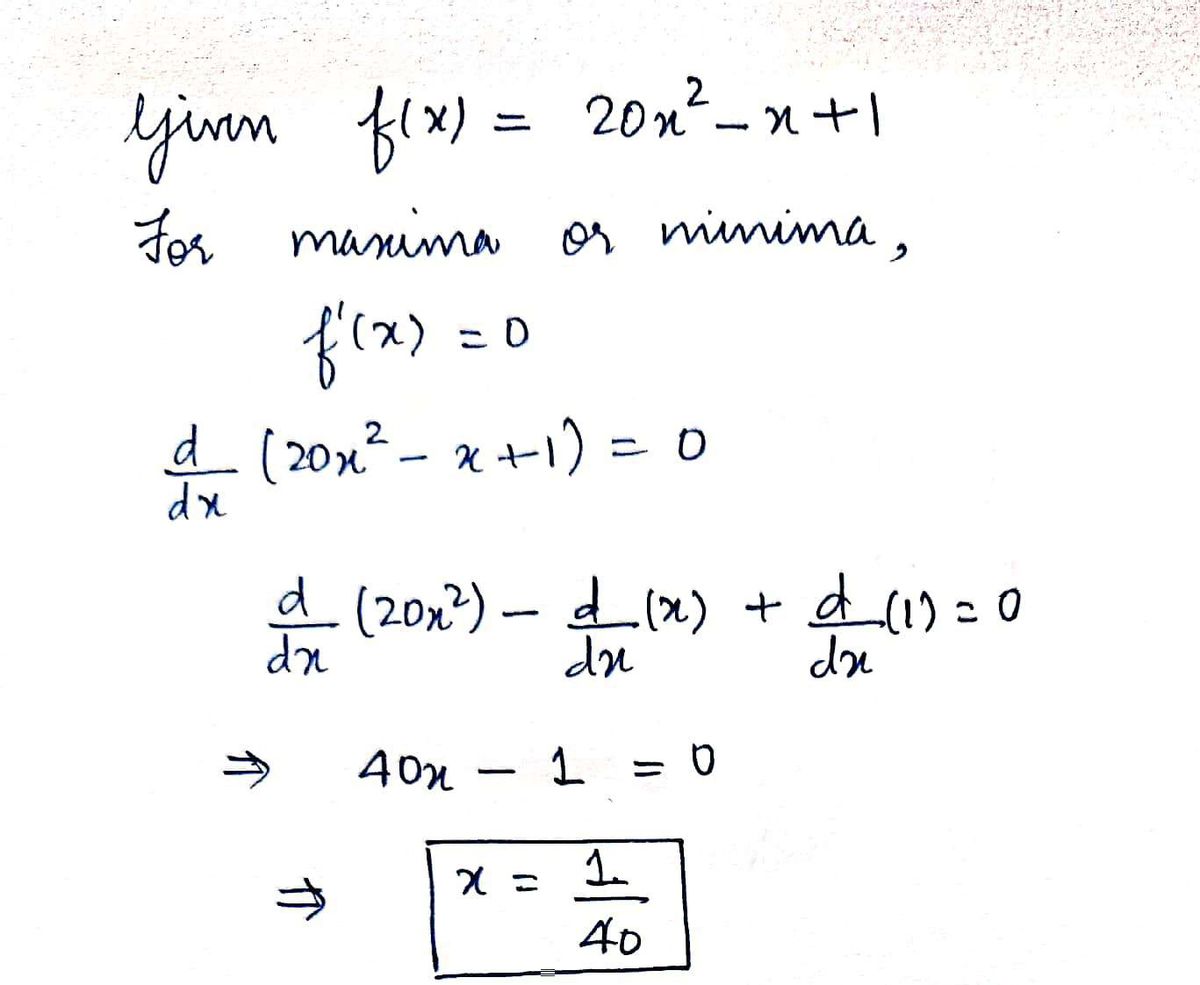 Given f(x) = 20x² - x + 1
For maxima or minima,
f'(x) = 0
d/dx (20x² - x + 1) = 0
d/dx (20x²) - d/dx (x) + d/dx (1) = 0
⇒ 40x - 1 = 0
⇒ x = 1/40